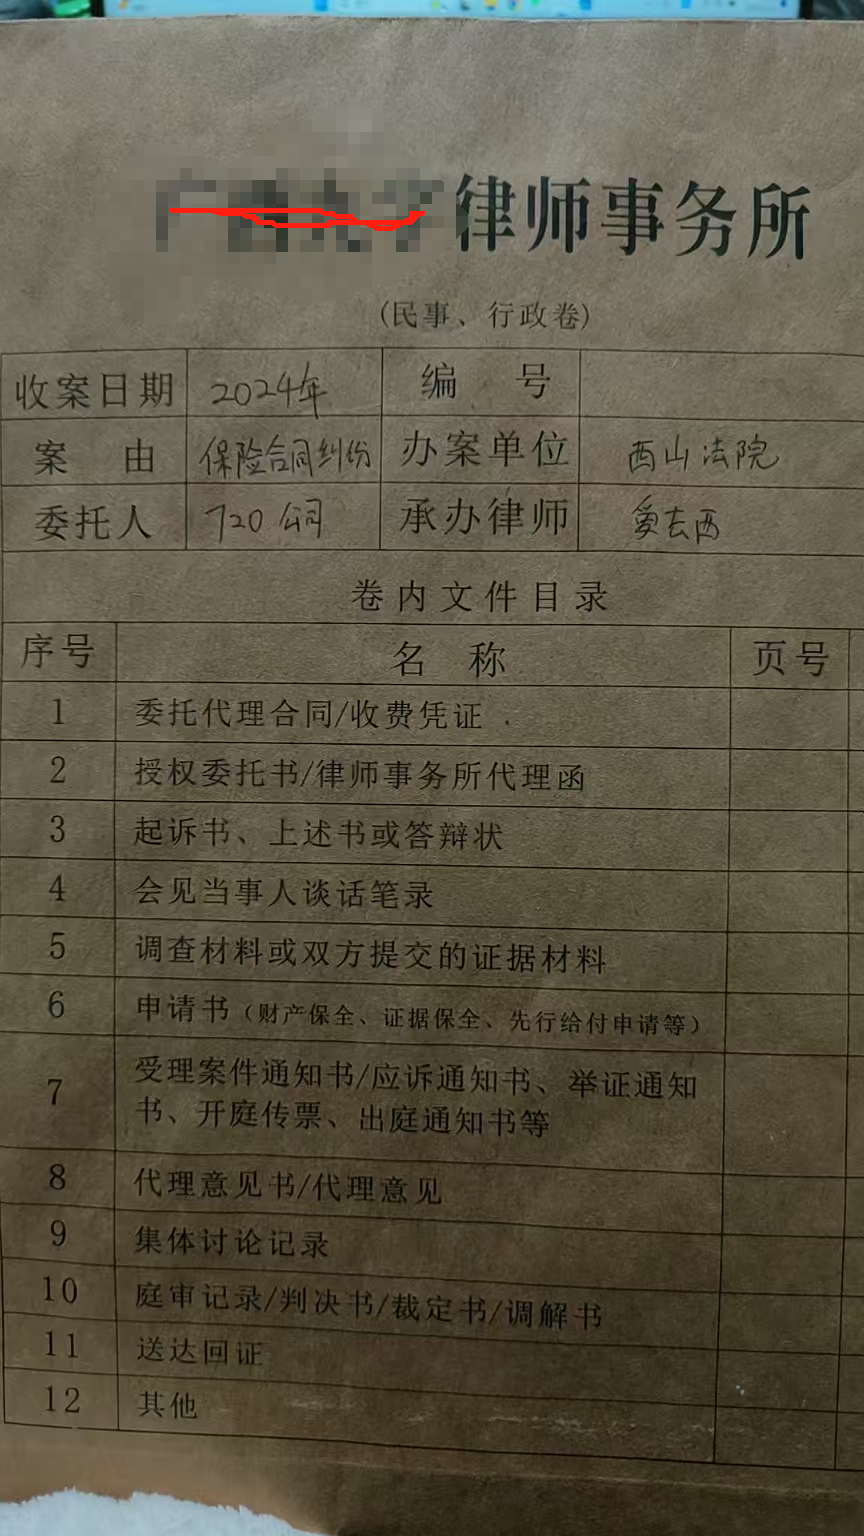 律师事务所
(民事、行政卷)
收案日期 2024年 编号
案由 保险合同纠纷 办案单位 西山法院
委托人 720公司 承办律师
卷内文件目录
序号 名称 页号
1 委托代理合同/收费凭证
2 授权委托书/律师事务所代理函
3 起诉书、上述书或答辩状
4 会见当事人谈话笔录
5 调查材料或双方提交的证据材料
6 申请书（财产保全、证据保全、先行给付申请等）
7 受理案件通知书/应诉通知书、举证通知
书、开庭传票、出庭通知书等
8 代理意见书/代理意见
9 集体讨论记录
10 庭审记录/判决书/裁定书/调解书
11 送达回证
12 其他